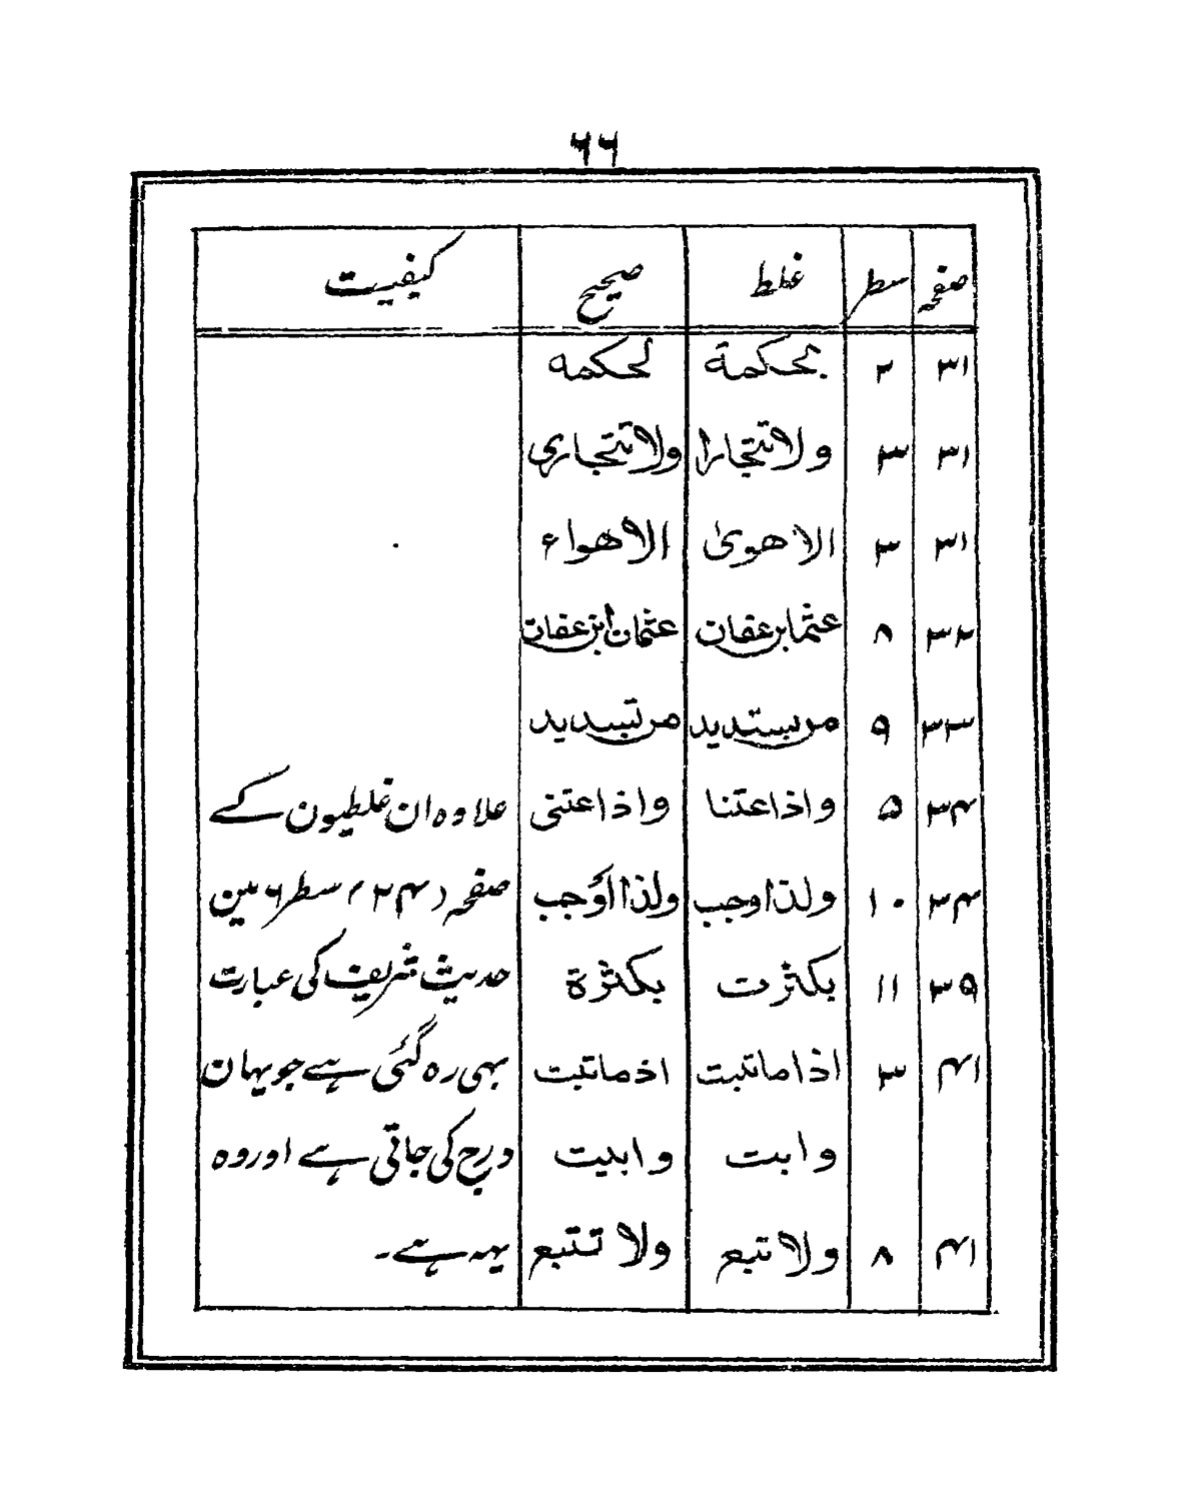 ۶۶
صفحہ سطر غلط صحیح کیفیت
۳۱ ۲ بحکمة لحکمه
۳۱ ۳ ولا تتجارا ولا تتجاری
۳۱ ۳ الاھویٰ الاھواء
۳۲ ۸ عثما بن عفان عثمان ابن عفان
۳۳ ۹ من یستدید من تسدید
۳۴ ۵ واذاعتنا واذاعتنی علاوہ ان غلطیون کے
۳۴ ۱۰ ولذا وجب ولذا اوجب صفحہ (۲۴) سطر ۶ مین
۳۵ ۱۱ بکثرت بکثرة حدیث شریف کی عبارت
۴۱ ۳ اذا ماتبت اذ ماتبت بہی رہ گئی ہے جو یہان
وابت وابیت درج کی جاتی ہے اور وہ
۴۱ ۸ ولا تبع ولا تتبع یہہ ہے۔